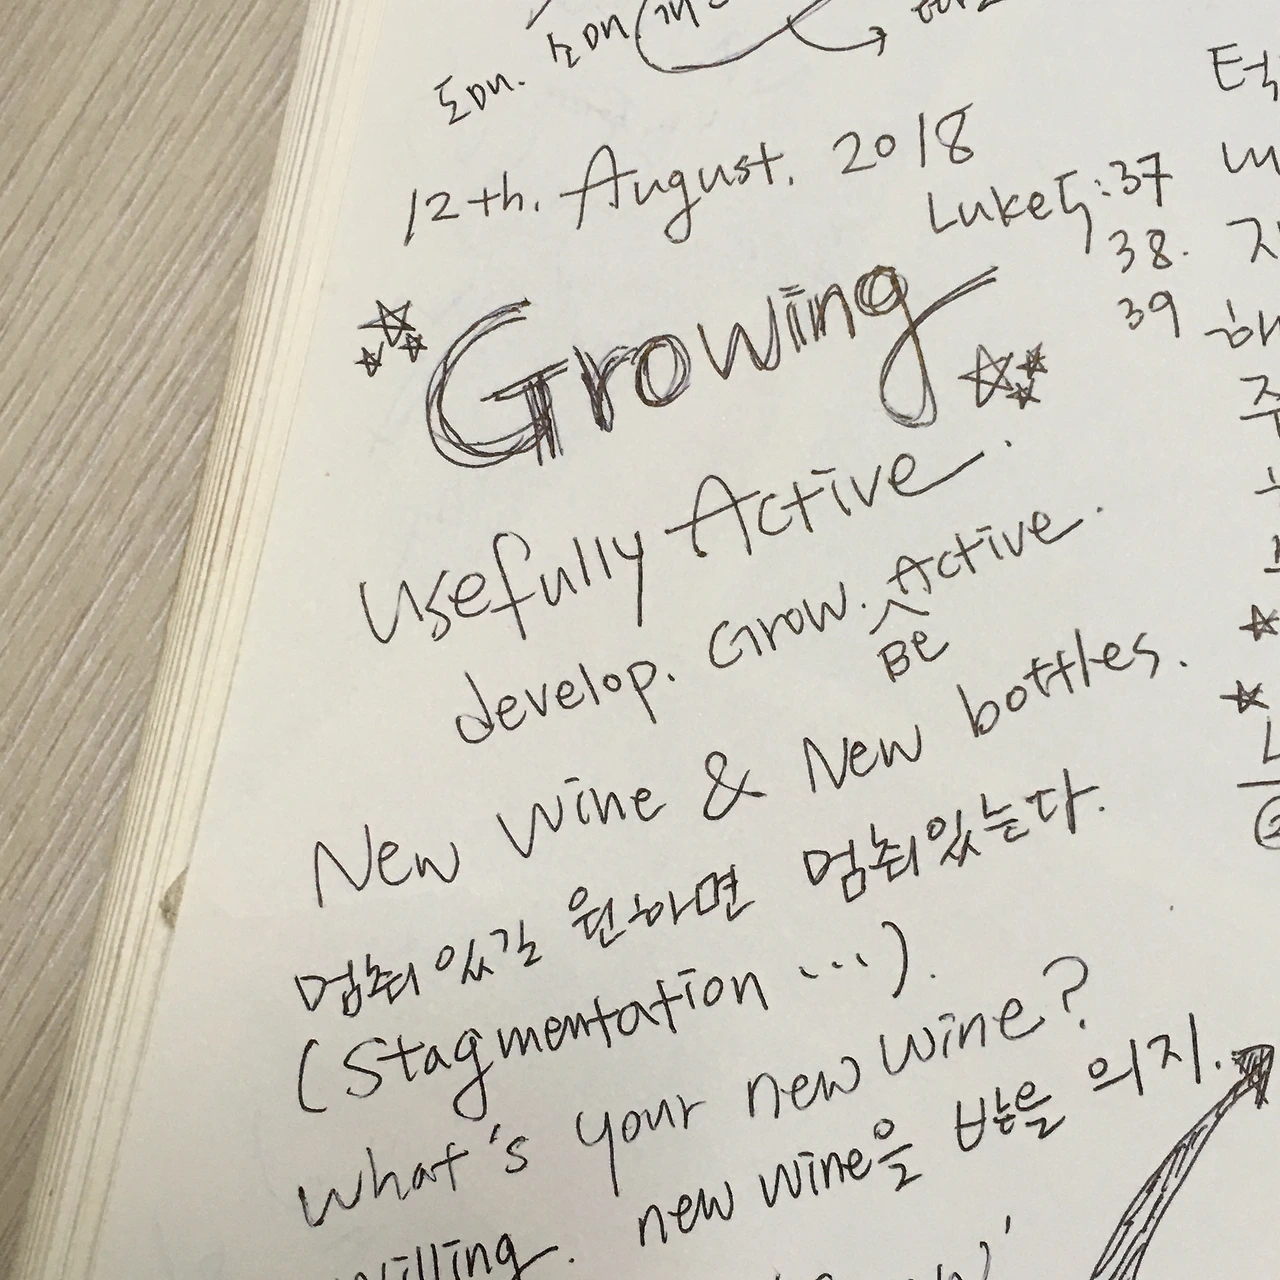 12th. August. 2018
Luke5:37
38.
39
Growing
Usefully Active.
develop. Grow. Active.
Be
New wine & New bottles.
멈춰있길 원하면 멈춰있는다.
(Stagmentation ...).
what's your new wine?
willing. new wine을 받을 의지.